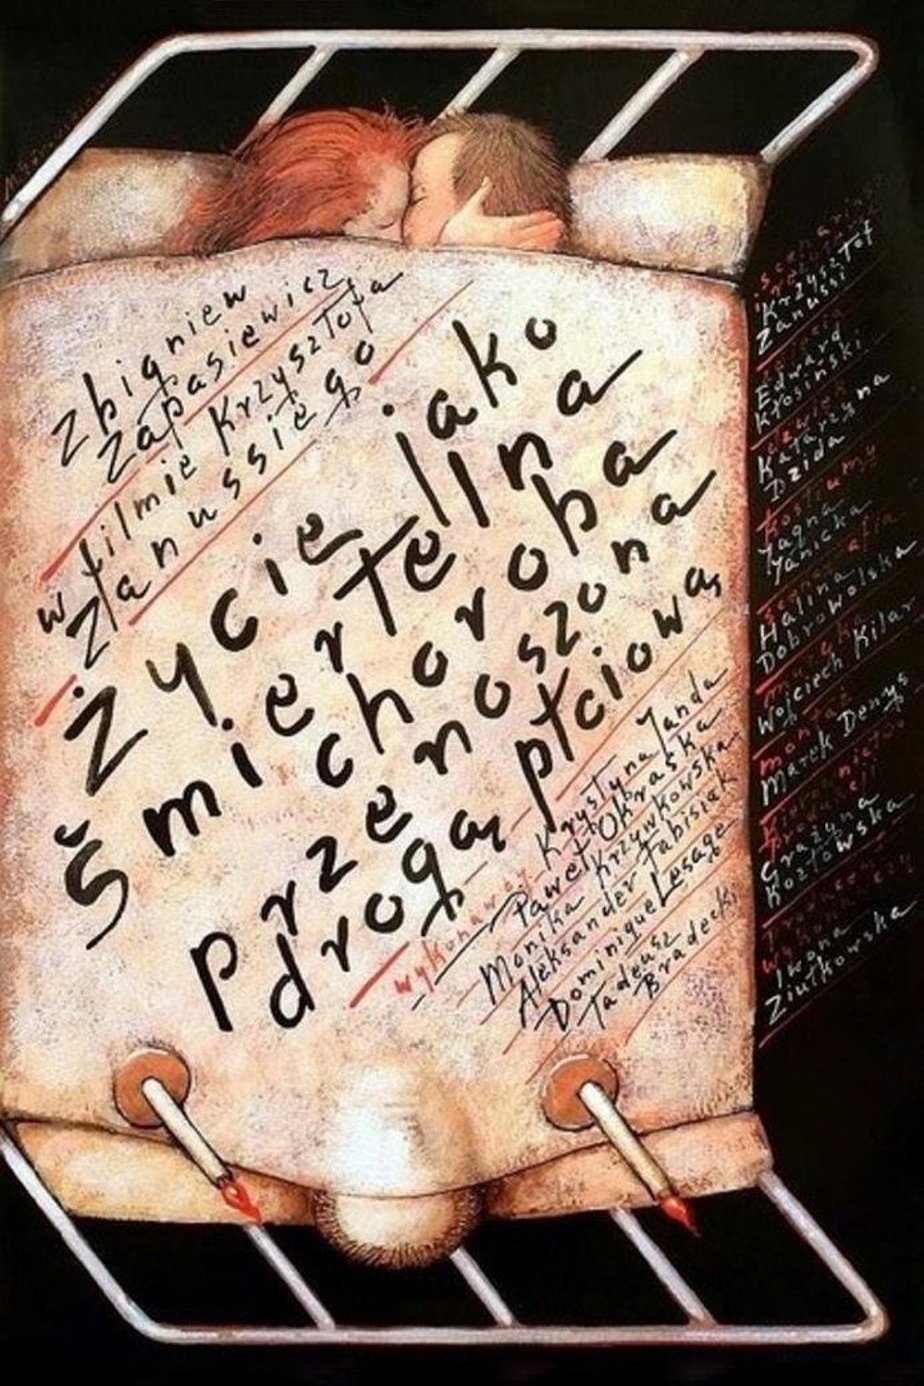 Zbigniew
Zapasiewicz
w filmie Krzysztofa
Zanussiego
Życie jako
Śmiertelna
choroba
przenoszona
drogą płciową
wykonawcy Krystyna Janda
Paweł Okraska
Monika Krzywkowska
Aleksander Fabisiak
Dominique Lesage
Tadeusz
Bradecki
Krzysztof
Zanussi
zdjęcia
Edward
Kłosiński
dźwięk
Katarzyna
Dzida
kostiumy
Jagna
Janicka
scenografia
Halina
Dobrowolska
muzyka
Wojciech Kilar
montaż
Marek Denys
kierownictwo
produkcji
Grażyna
Kozłowska
producent
wykonawczy
Iwona
Ziułkowska